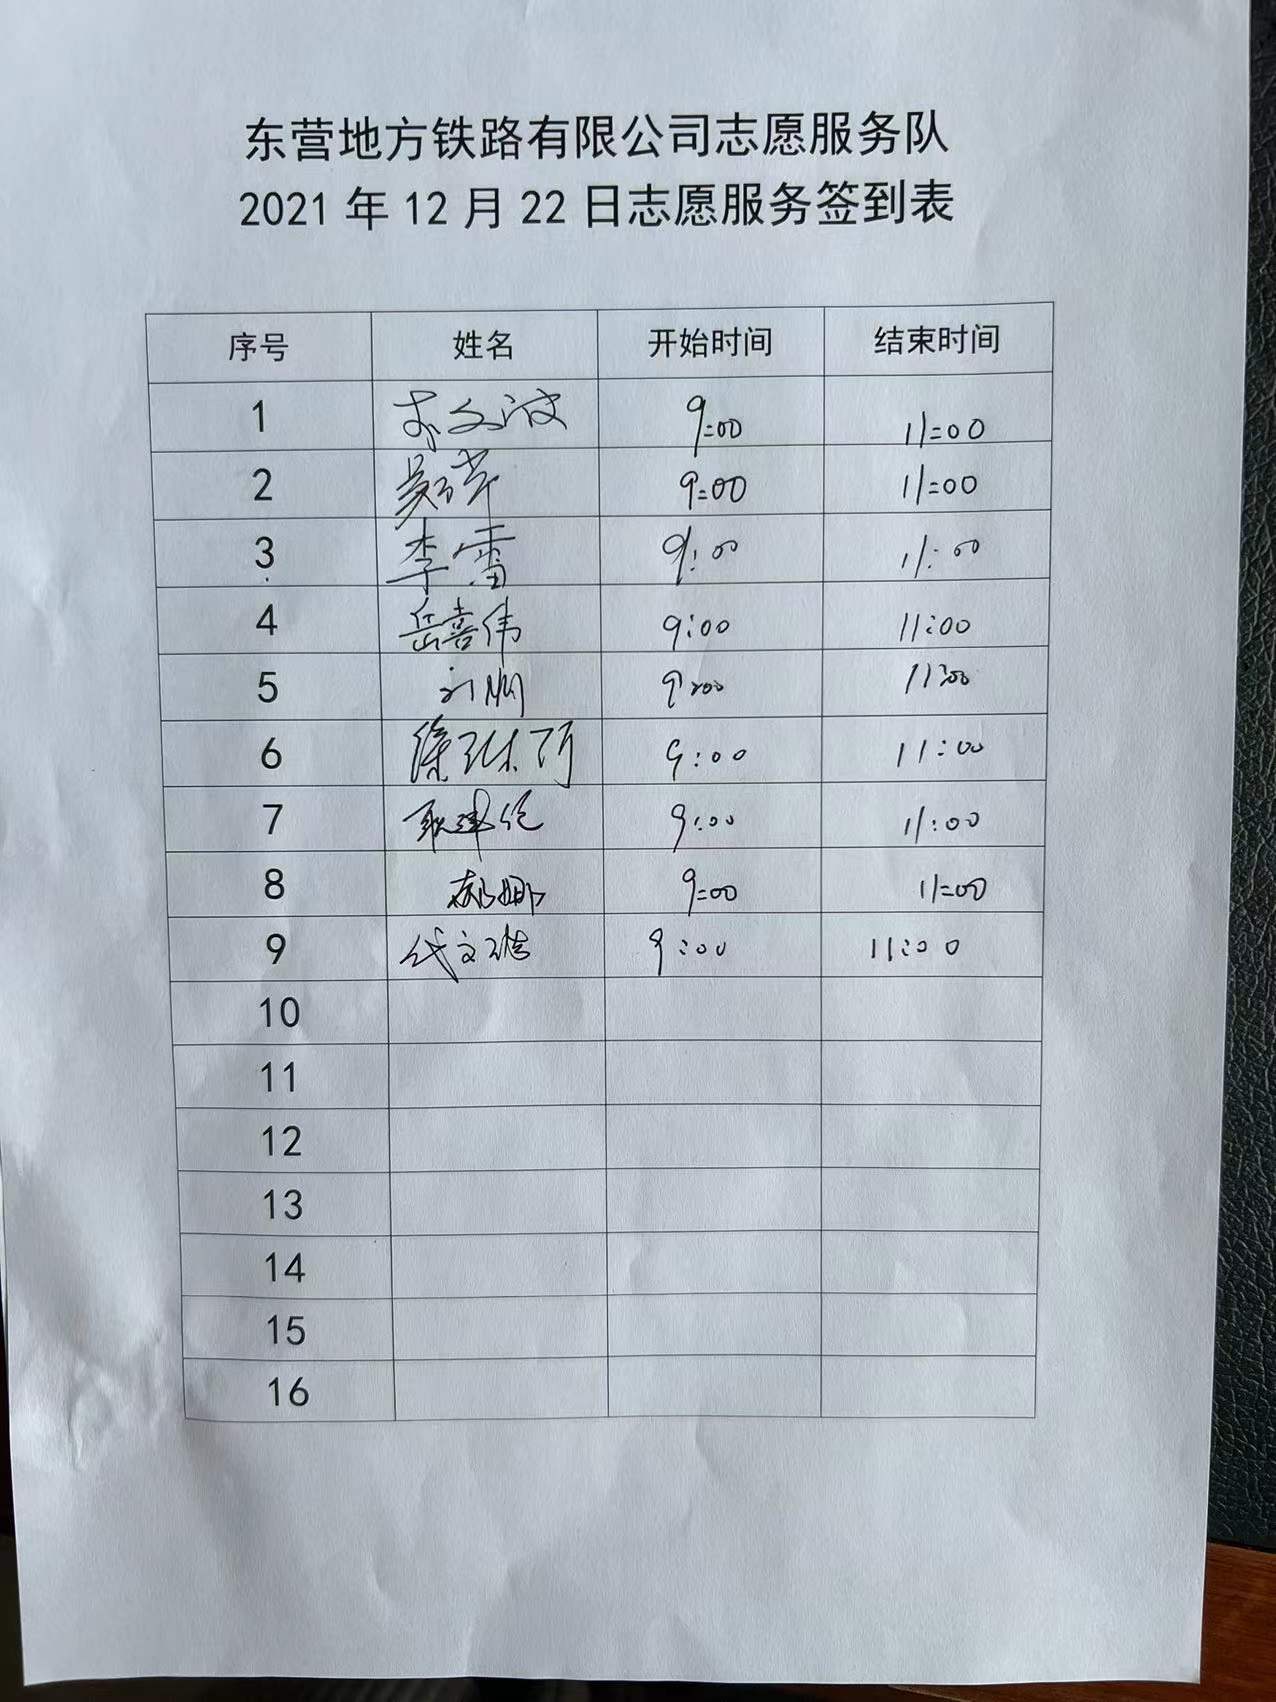 东营地方铁路有限公司志愿服务队
2021 年 12 月 22 日志愿服务签到表
序号 姓名 开始时间 结束时间
1 9:00 11:00
2 9:00 11:00
3 李雷 9:00 11:00
4 岳喜伟 9:00 11:00
5 9:00 11:00
6 9:00 11:00
7 9:00 11:00
8 郝娜 9:00 11:00
9 代文浩 9:00 11:00
10
11
12
13
14
15
16